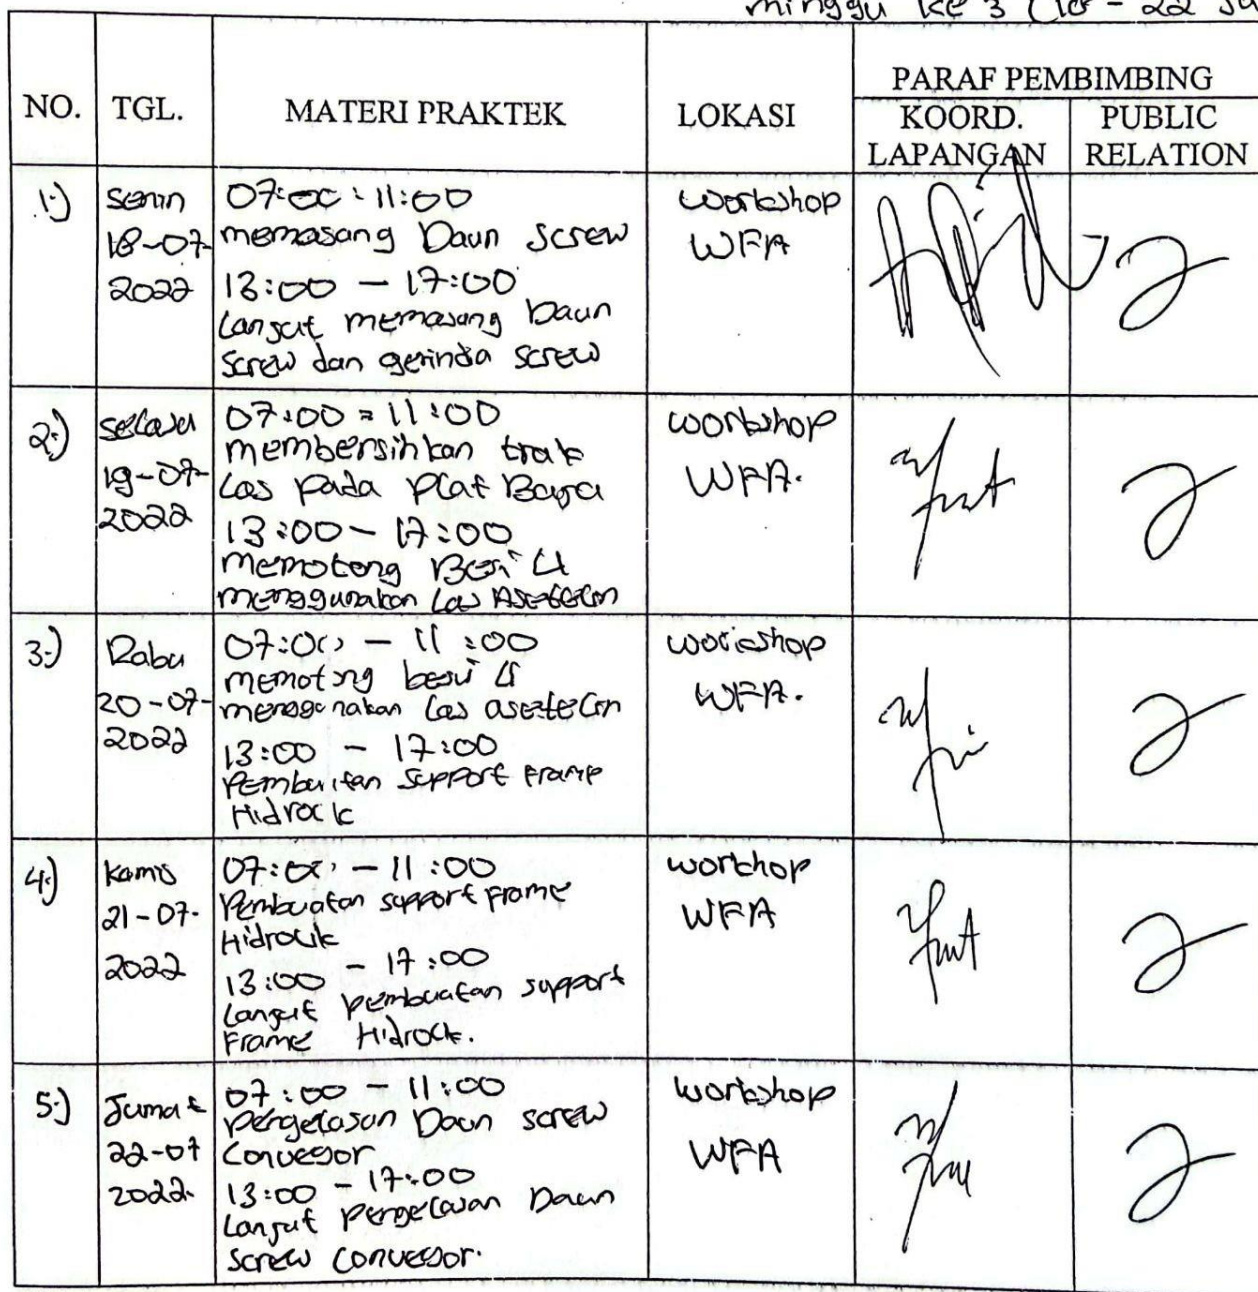 minggu ke 3 (18 - 22
NO. TGL. MATERI PRAKTEK LOKASI PARAF PEMBIMBING
KOORD. LAPANGAN PUBLIC RELATION
1.) Senin 18-07-2022
07:00 - 11:00
memasang Daun screw
13:00 - 17:00
Lanjut memasang Daun
screw dan gerinda screw
workshop
WFA
2.) selasa 19-07-2022
07:00 = 11:00
membersihkan trak
Las pada Plat Baja
13:00 - 17:00
memotong Besi
menggunakan Las Asetelin
workshop
WFA.
3.) Rabu 20-07-2022
07:00 - 11:00
memotong besi
menggunakan Las asetelin
13:00 - 17:00
Pembuatan support Frame
Hidrock
workshop
WFA.
4.) Kamis 21-07-2022
07:00 - 11:00
Pembuatan support frame
Hidrolik
13:00 - 17:00
Lanjut pembuatan support
Frame Hidrock.
workshop
WFA
5.) Jumat 22-07 2022.
07:00 - 11:00
Pengelasan Daun screw
Conveyor
13:00 - 17:00
Lanjut Pengelasan Daun
screw conveyor.
workshop
WFA